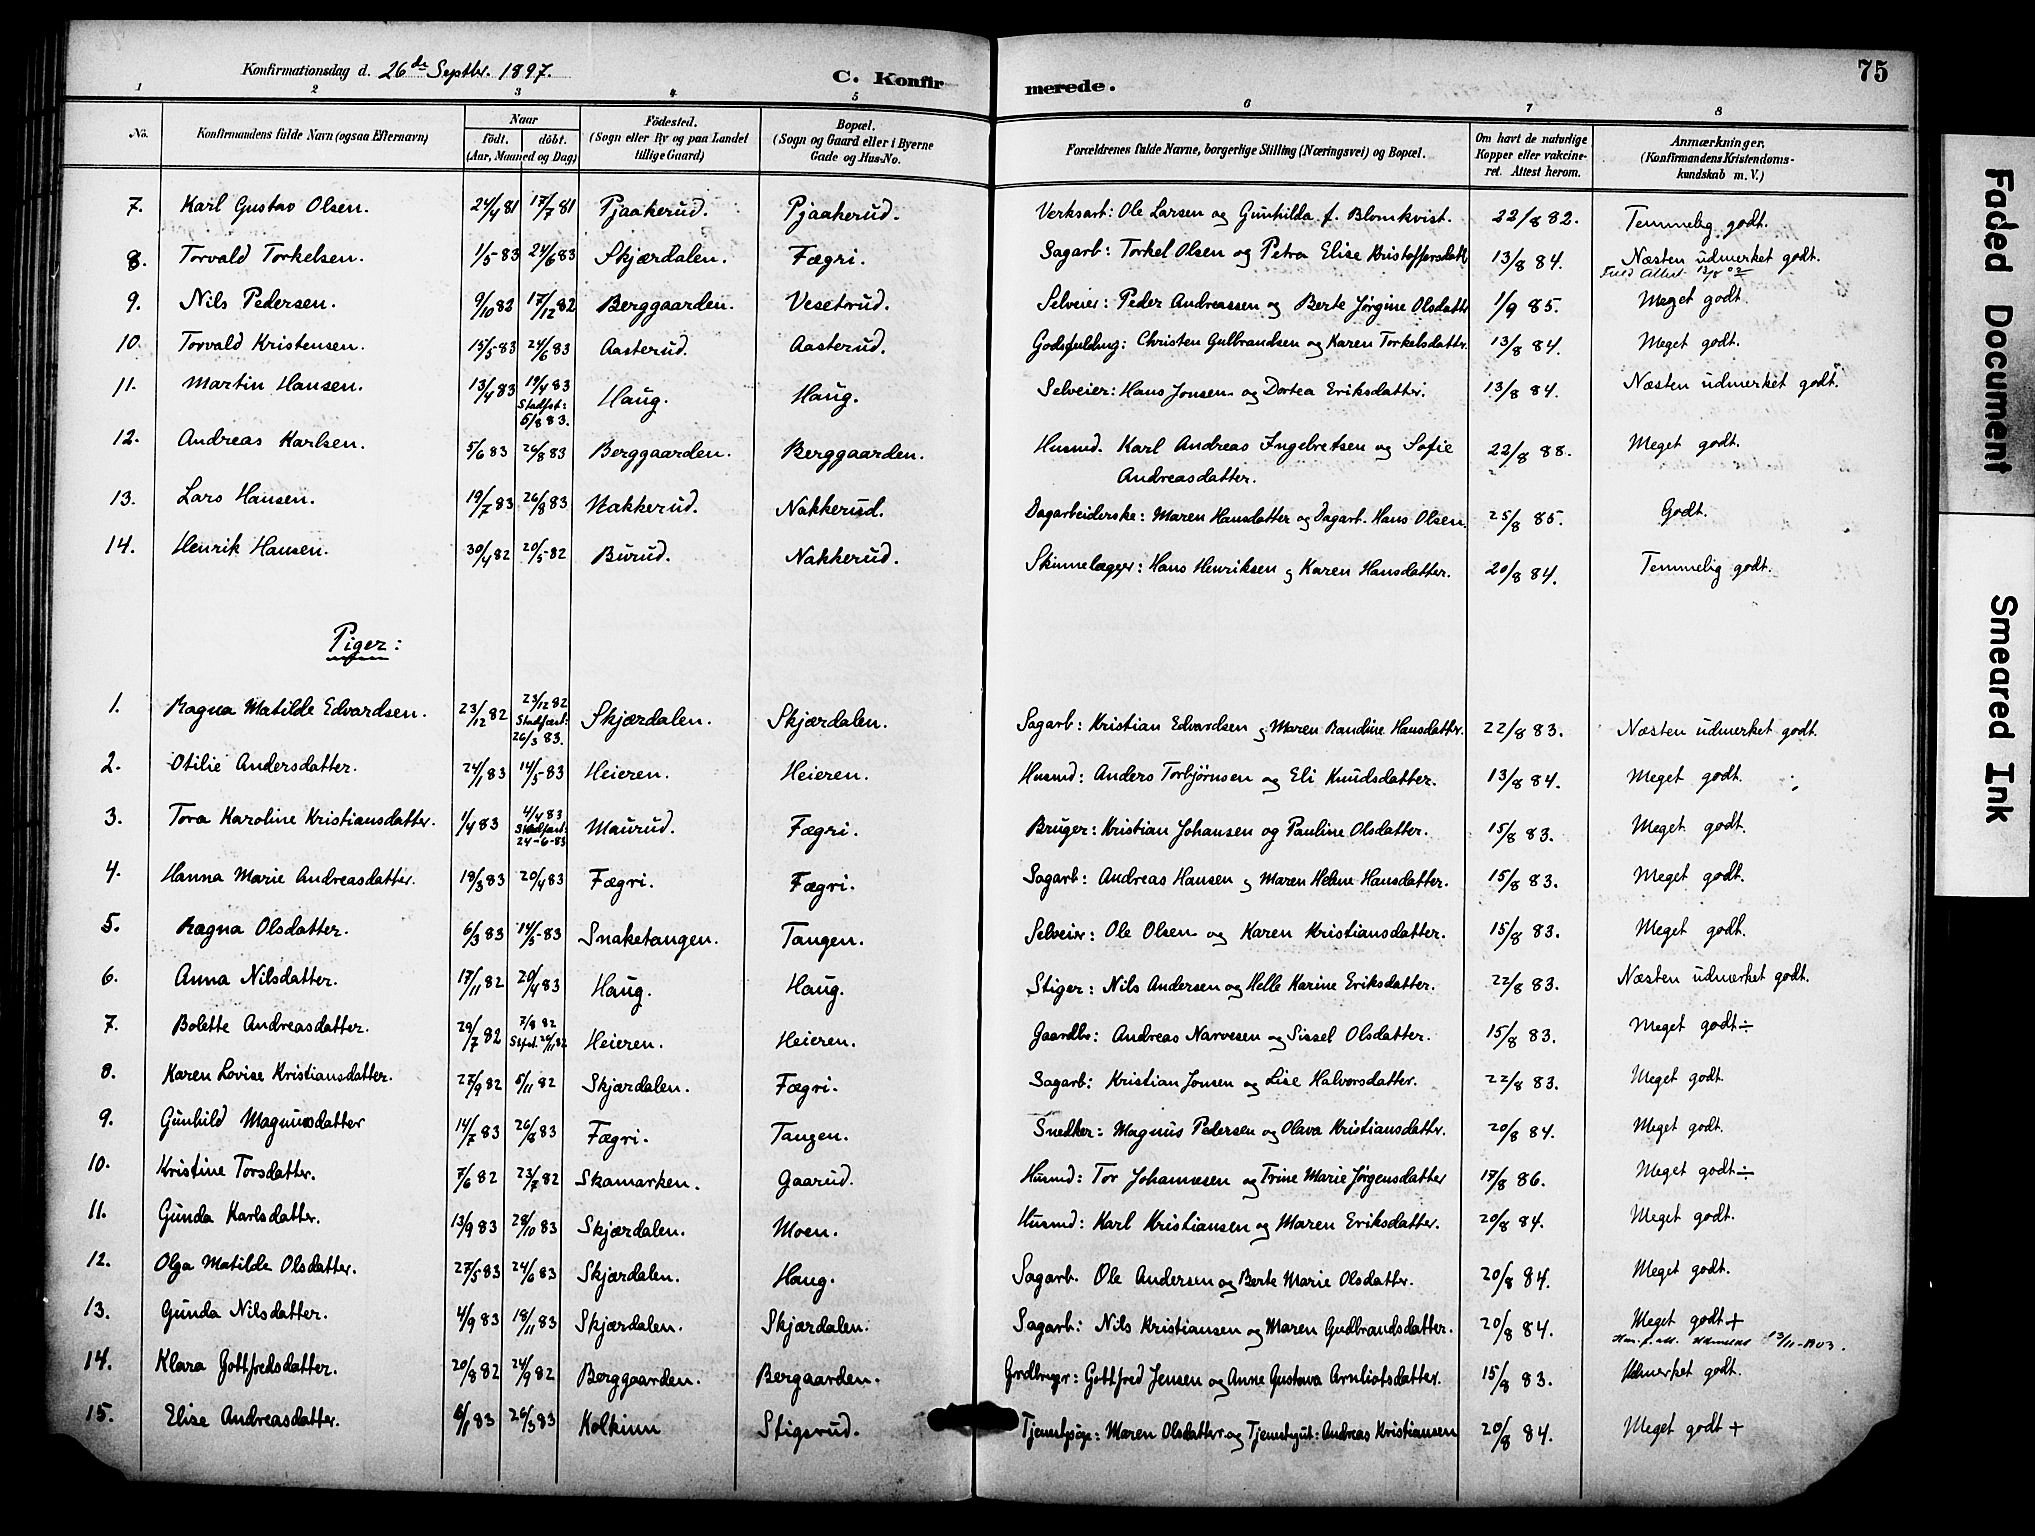 Konfirmationsdag d. 26de Septbr. 1897.
C. Konfirmerede.
75
1 2 3 4 5 6 7 8
No. Konfirmandens fulde Navn (ogsaa Efternavn) Naar födt. döbt. (Aar, Maaned og Dag) Födested. (Sogn eller By og paa Landet tillige Gaard) Bopæl. (Sogn og Gaard eller i Byerne Gade og Hus-No. Forældrenes fulde Navne, borgerlige Stilling (Næringsvei) og Bopæl. Om havt de naturlige Kopper eller vakcineret. Attest herom. Anmærkninger. (Konfirmandens Kristendomskundskab m. V.)
7. Karl Gustav Olsen. 24/4 81 17/7 81 Pjaakerud. Pjaakerud. Verksarb: Ole Larsen og Gunhilda f. Blomkvist. 22/8 82. Temmelig godt.
8. Torvald Torkelsen. 1/5-83 24/6 83 Skjærdalen. Fægri. Sagarb: Torkel Olsen og Petra Elise Kristoffersdatt 13/8 84. Næsten udmerket godt.
9. Nils Pedersen. 9/10 82 17/12 82 Berggaarden. Vesetrud. Selveier: Peder Andreassen og Berte Jørgine Olsdatter 1/9 85. Meget godt.
10. Torvald Kristensen. 15/5-83 24/6 83 Aasterud. Aasterud. Christen Gulbrandsen og Karen Torkelsdatter. 13/8 84. Meget godt.
11. Martin Hansen. 13/4 83 19/4 83 Stadfst: 5/8 83. Haug. Haug. Selveier: Hans Jonsen og Dortea Eriksdatter. 13/8 84. Næsten udmerket godt.
12. Andreas Karlsen. 5/6 83 26/8 83 Berggaarden. Berggaarden. Husmd. Karl Andreas Ingebretsen og Sofie Andreasdatter. 22/8 88. Meget godt.
13. Lars Hansen. 19/7 83 26/8 83 Nakkerud. Nakkerud. Dagarbeiderske: Maren Hansdatter og Dagarb. Hans Olsen. 25/8 85. Godt.
14. Henrik Hansen. 30/4 82 20/5-82 Burud. Nakkerud. Skinnelægger: Hans Henriksen og Karen Hansdatter. 20/8 84. Temmelig godt.
Piger:
1. Ragna Matilde Edvardsen. 23/12 82 23/12 82 Stadfæst: 26/3 83. Skjærdalen. Skjærdalen. Sagarb: Kristian Edvardsen og Maren Randine Hansdatter. 22/8 83. Næsten udmerket godt.
2. Otilie Andersdatter. 24/1 83 14/5-83 Heieren. Heieren. Husmd: Anders Torbjørnsen og Eli Knudsdatter. 13/8 84. Meget godt.
3. Tora Karoline Kristiansdatter. 1/4 83 4/4 83 Stadfæst: 24-6-83 Maurud. Fægri. Bruger: Kristian Johansen og Pauline Olsdatter. 15/8 83. Meget godt.
4. Hanna Marie Andreasdatter. 19/3 83 20/4 83 Fægri. Fægri. Sagarb: Andreas Hansen og Maren Helene Hansdatter. 15/8 83. Meget godt.
5. Ragna Olsdatter. 6/3 83 14/5-83 Snaketangen. Tangen. Selveier: Ole Olsen og Karen Kristiansdatter. 15/8 83. Meget godt.
6. Anna Nilsdatter. 17/11 82 20/4 83 Haug. Haug. Stiger: Nils Andersen og Helle Karine Eriksdatter. 22/8 83. Næsten udmerket godt.
7. Bolette Andreasdatter. 29/7 82 7/8 82 Stfst. 26/11 82 Heieren. Heieren. Gaardbr: Andreas Narvesen og Sissel Olsdatter. 15/8 83. Meget godt÷
8. Karen Lovise Kristiansdatter. 27/9 82 5/11 82 Skjærdalen. Fægri. Sagarb: Kristian Jonsen og Lise Halvorsdatter. 22/8 83. Meget godt.
9. Gunhild Magnusdatter 14/7 83 26/8 83 Fægri. Tangen. Snedker: Magnus Pedersen og Olava Kristiansdattr. 20/8 84. Meget godt.
10. Kristine Torsdatter. 7/6 82 23/7 82 Skamarken. Gaarud. Husmd: Tor Johannesen og Trine Marie Jørgensdatter 17/8 86. Meget godt÷
11. Gunda Karlsdatter. 13/9 83 28/10 83 Skjærdalen. Moen. Husmd: Karl Kristiansen og Maren Eriksdatter. 20/8 84. Meget godt.
12. Olga Matilde Olsdatter. 27/5-83 24/6 83 Skjærdalen. Haug. Sagarb. Ole Andersen og Berte Marie Olsdatter. 20/8 84. Meget godt.
13. Gunda Nilsdatter. 4/9 83 18/11 83 Skjærdalen. Skjærdalen. Sagarb: Nils Kristiansen og Maren Gudbrandsdatter. 20/8 84. Meget godt+
13/11-1903.
14. Klara Gottfredsdatter. 20/8 82 24/9 82 Berggaarden. Bergaarden. Grdbruger: Gottfred Jensen og Anne Gustava Arnliotsdatter. 15/8 83. Udmerket godt.
15. Elise Andreasdatter. 6/1 83 26/3 83 Kolkinn Stigsrud. Tjenestpige: Maren Olsdatter og Tjenestgut: Andreas Kristiansen 20/8 84. Meget godt+
Faded Document
Smeared Ink